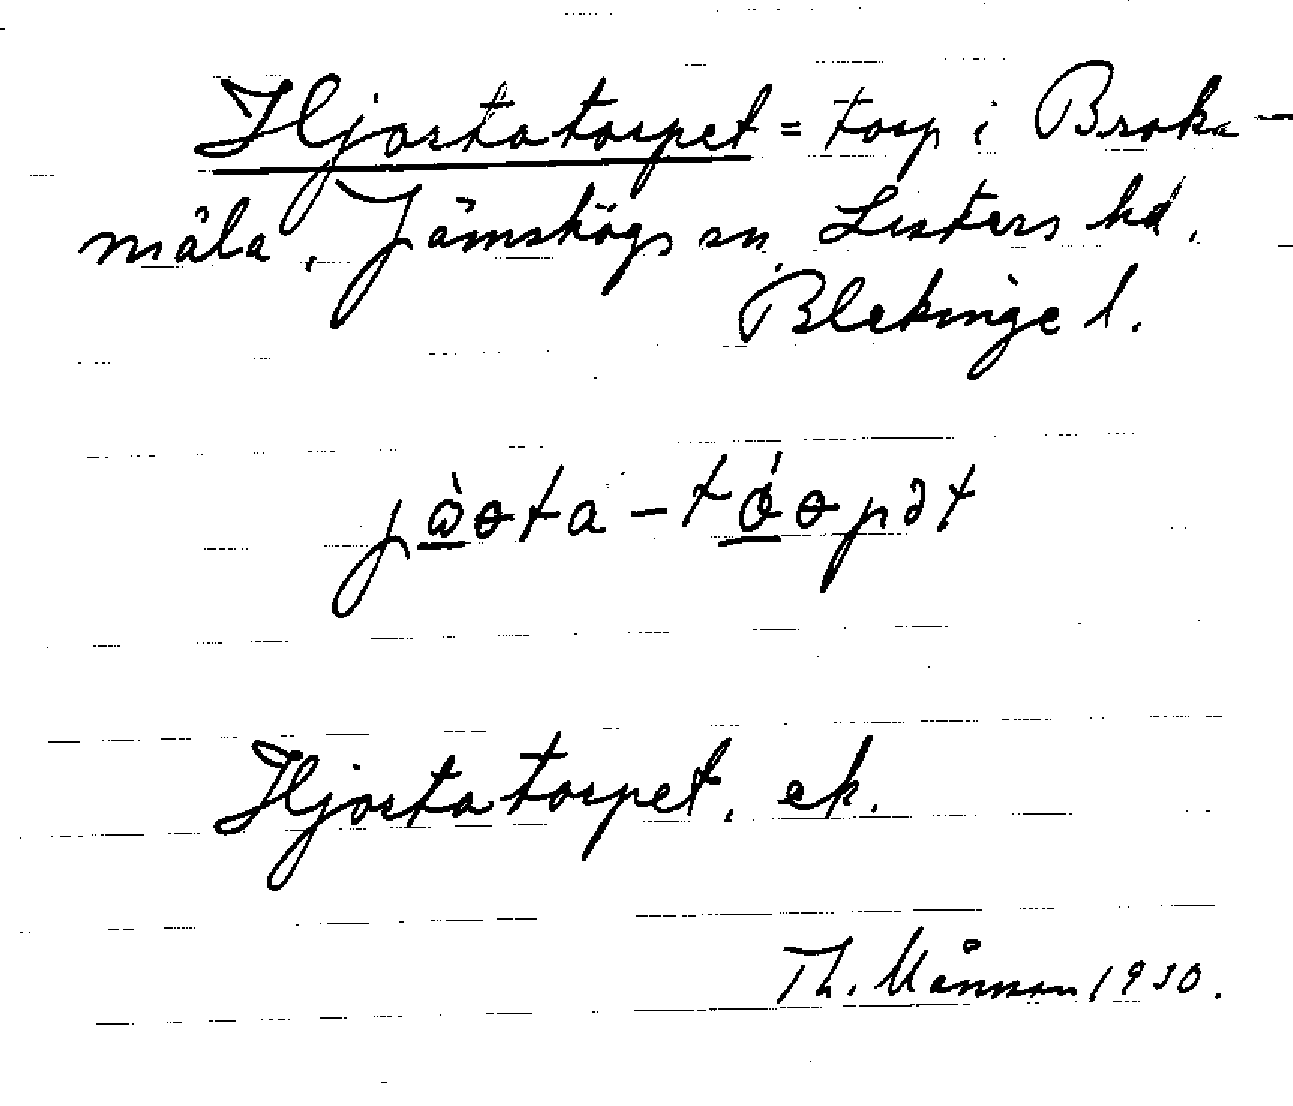 Hjortatorpet = torp i Broka-
måla, Jämshögs sn, Listers hd,
Blekinge l.
jὼɵta-tớɵpət
Hjortatorpet, ek.
Th. Månson 1930.